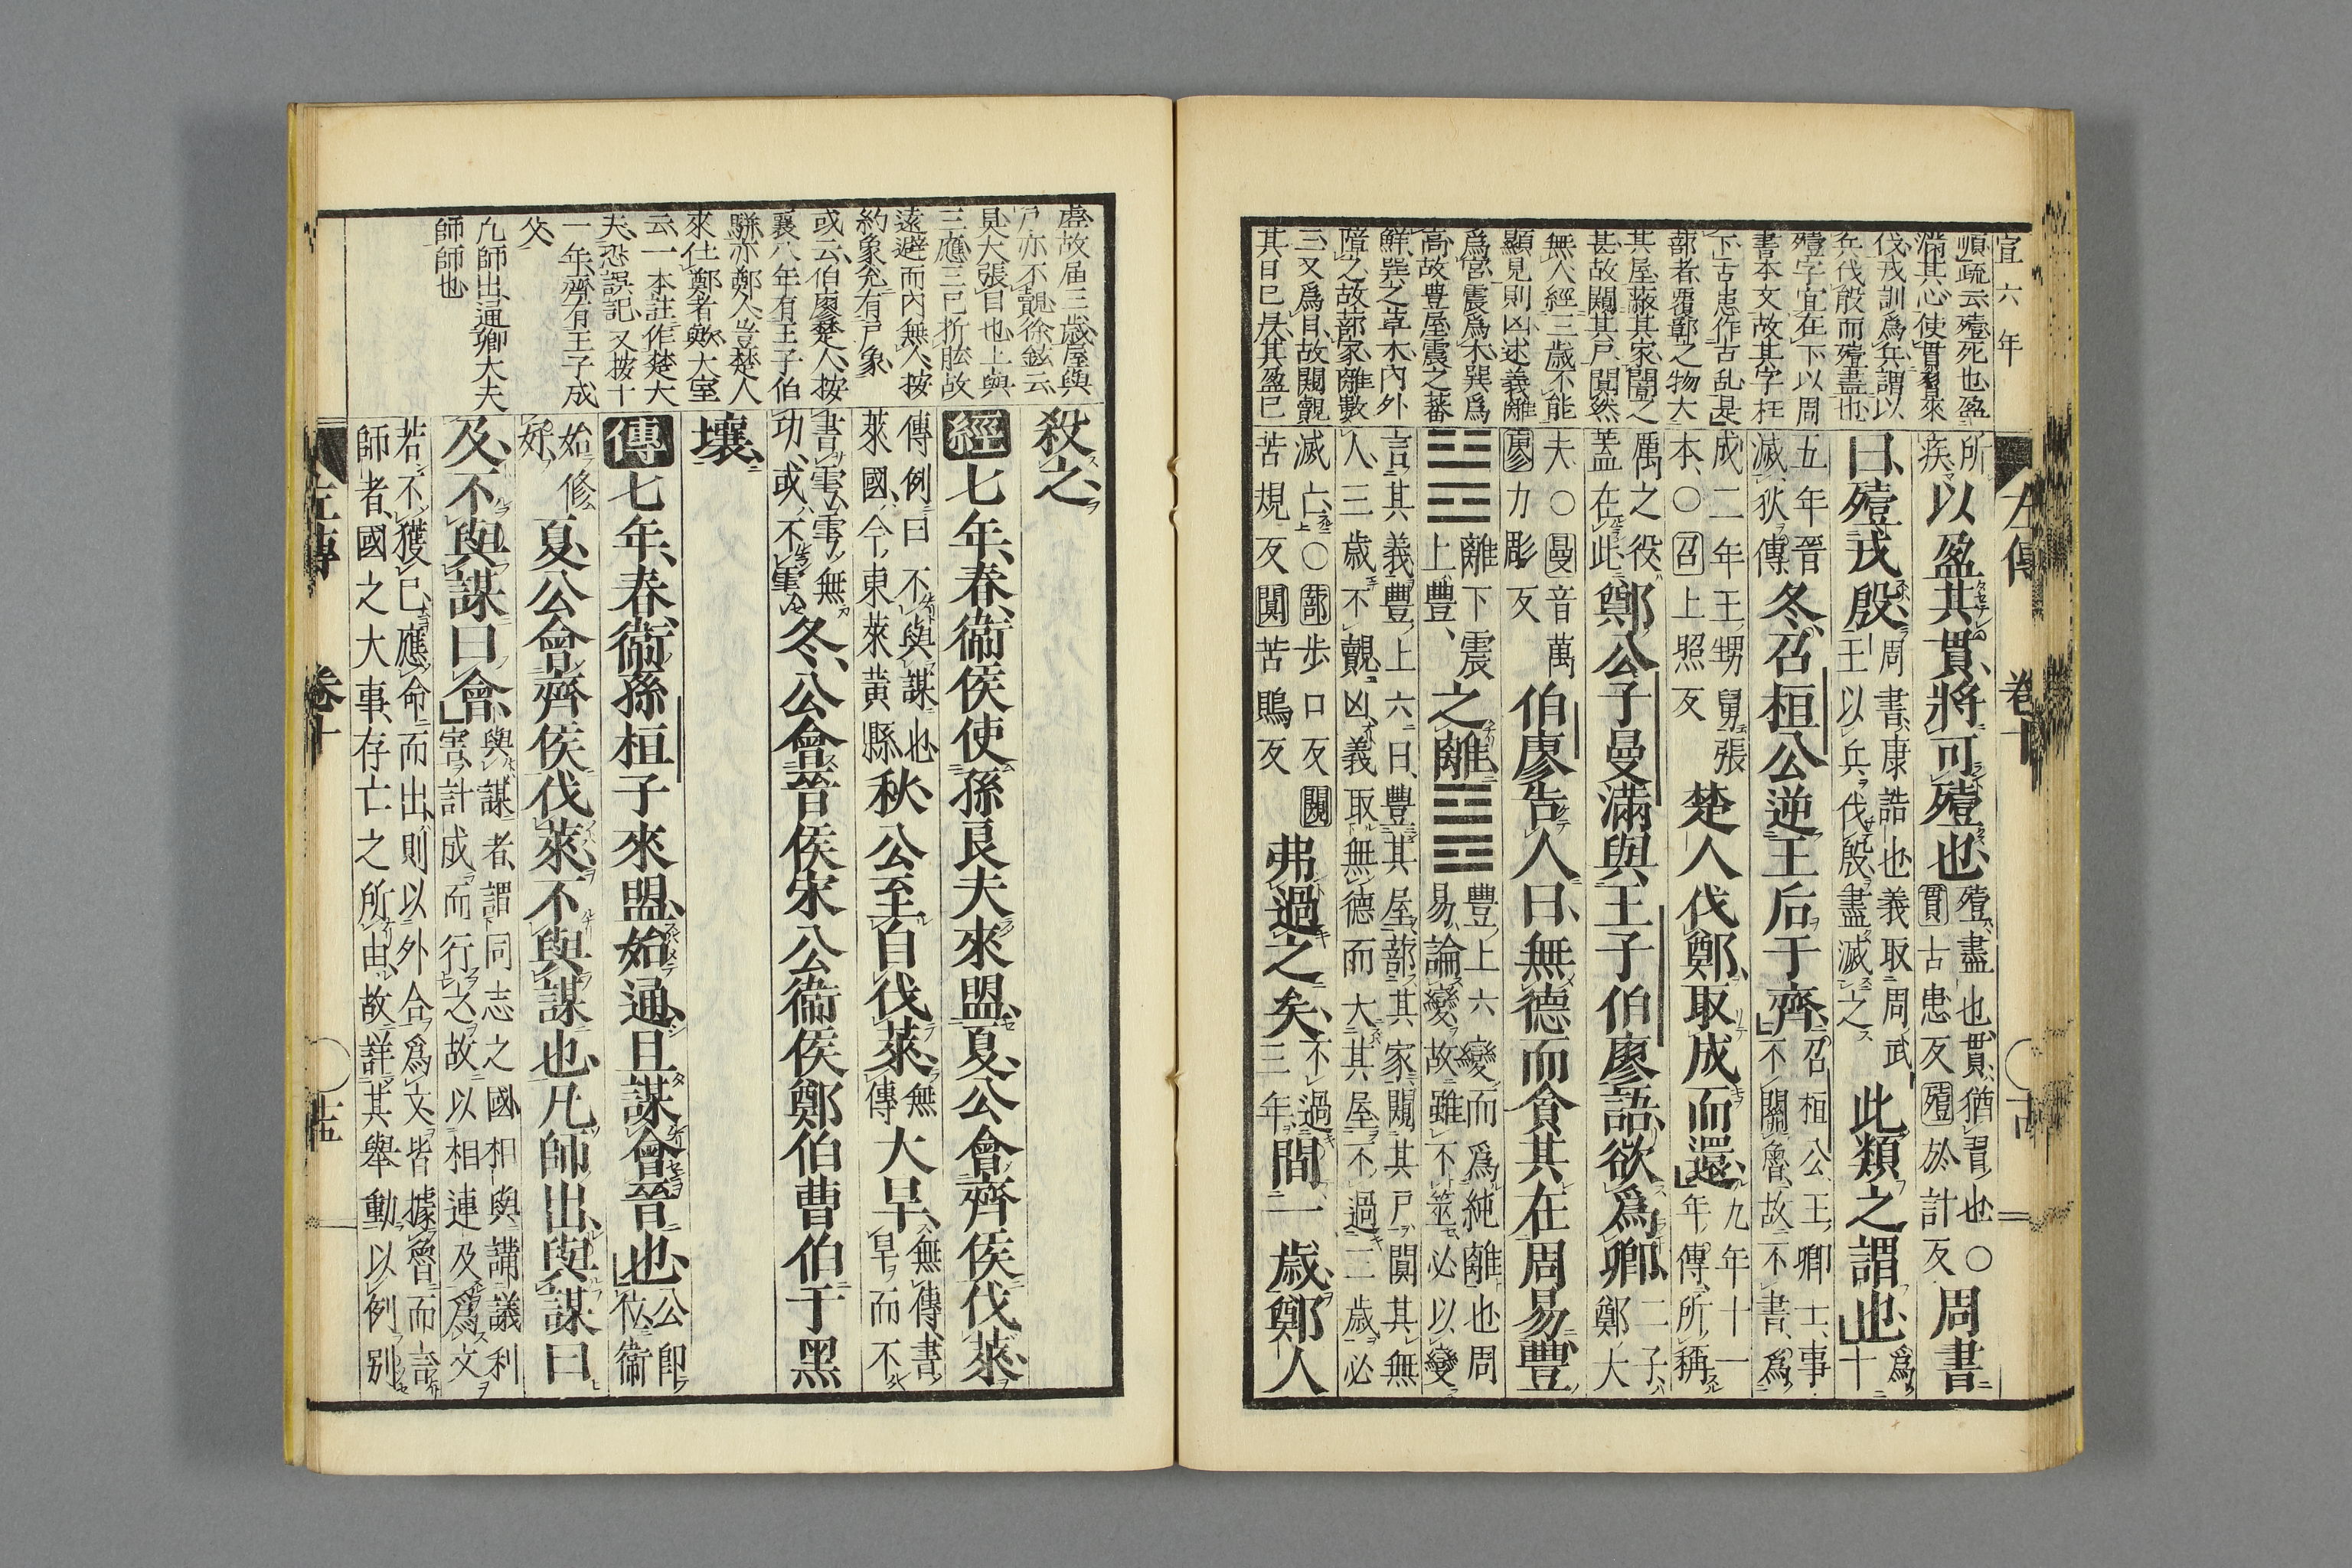 宣六年
順疏云殪死也盈
滿其心使貫習來
伐戎訓爲兵謂以
兵伐殷而殪盡也
殪字宜在下以周
書本文故其字在
下古患作古乱是
蔀者覆鄣之物大
其屋蔽其家闚之
甚故闚其戶闃然
無人經三歲不能
顯見則凶述義離
爲宮震爲木巽爲
高故豊屋震之蕃
鮮巽之草木內外
障之故蔀家離數
三又爲目故闚覿
其日巳昃其盈巳
左傳 卷十
所疾以盈其貫將可殪也殪盡也貫猶習也○貫古患反殪於計反周書
曰殪戎殷周書康誥也義取周武王以兵伐殷盡滅之此類之謂也爲十
五年晉滅狄傳冬召桓公逆王后于齊召桓公王卿士事不關魯故不書爲
成二年王甥舅張本○召上照反楚人伐鄭取成而還九年十一年傳所稱
厲之役蓋在此鄭公子曼滿與王子伯廖語欲爲卿二子鄭大
夫○曼音萬廖力彫反伯廖告人曰無德而貪其在周易豐
䷶離下震上豐之離䷝豐上六變而爲純離也周易論變故雖不筮必以變
言其義豐上六曰豐其屋蔀其家闚其戶闃其無人三歲不覿凶義取無德而大其屋不過三歲必
滅亡○蔀步口反闚苦規反闃苦鶪反弗過之矣不過三年間一歲鄭人
虛故屆三歲屋與
戶亦不覿徐鉉云
具大張目也上與
三應三已折肱故
遠避而內無人按
約象兊有戸象
或云伯廖楚人按
襄八年有王子伯
駢亦鄭人豈楚人
來仕鄭者歟大室
云一本註作楚大
夫恐誤記又按十
一年齊有王子成
父
凢師出通卿大夫
師師也
殺之
經七年春衞侯使孫良夫來盟夏公會齊侯伐萊
傳例曰不與謀也萊國今東萊黃縣秋公至自伐萊無傳大旱無傳書旱而不
書雩雩無功或不雩冬公會晉侯宋公衞侯鄭伯曹伯于黑
壤
傳七年春衞孫桓子來盟始通且謀會晉也公即位衞
始修好夏公會齊侯伐萊不與謀也凢師出與謀曰
及不與謀曰會與謀者謂同志之國相與講議利害計成而行之故以相連及爲文
若不獲已應命而出則以外合爲文皆據魯而言師者國之大事存亡之所由故詳其舉動以例別
左傳 卷十 十五